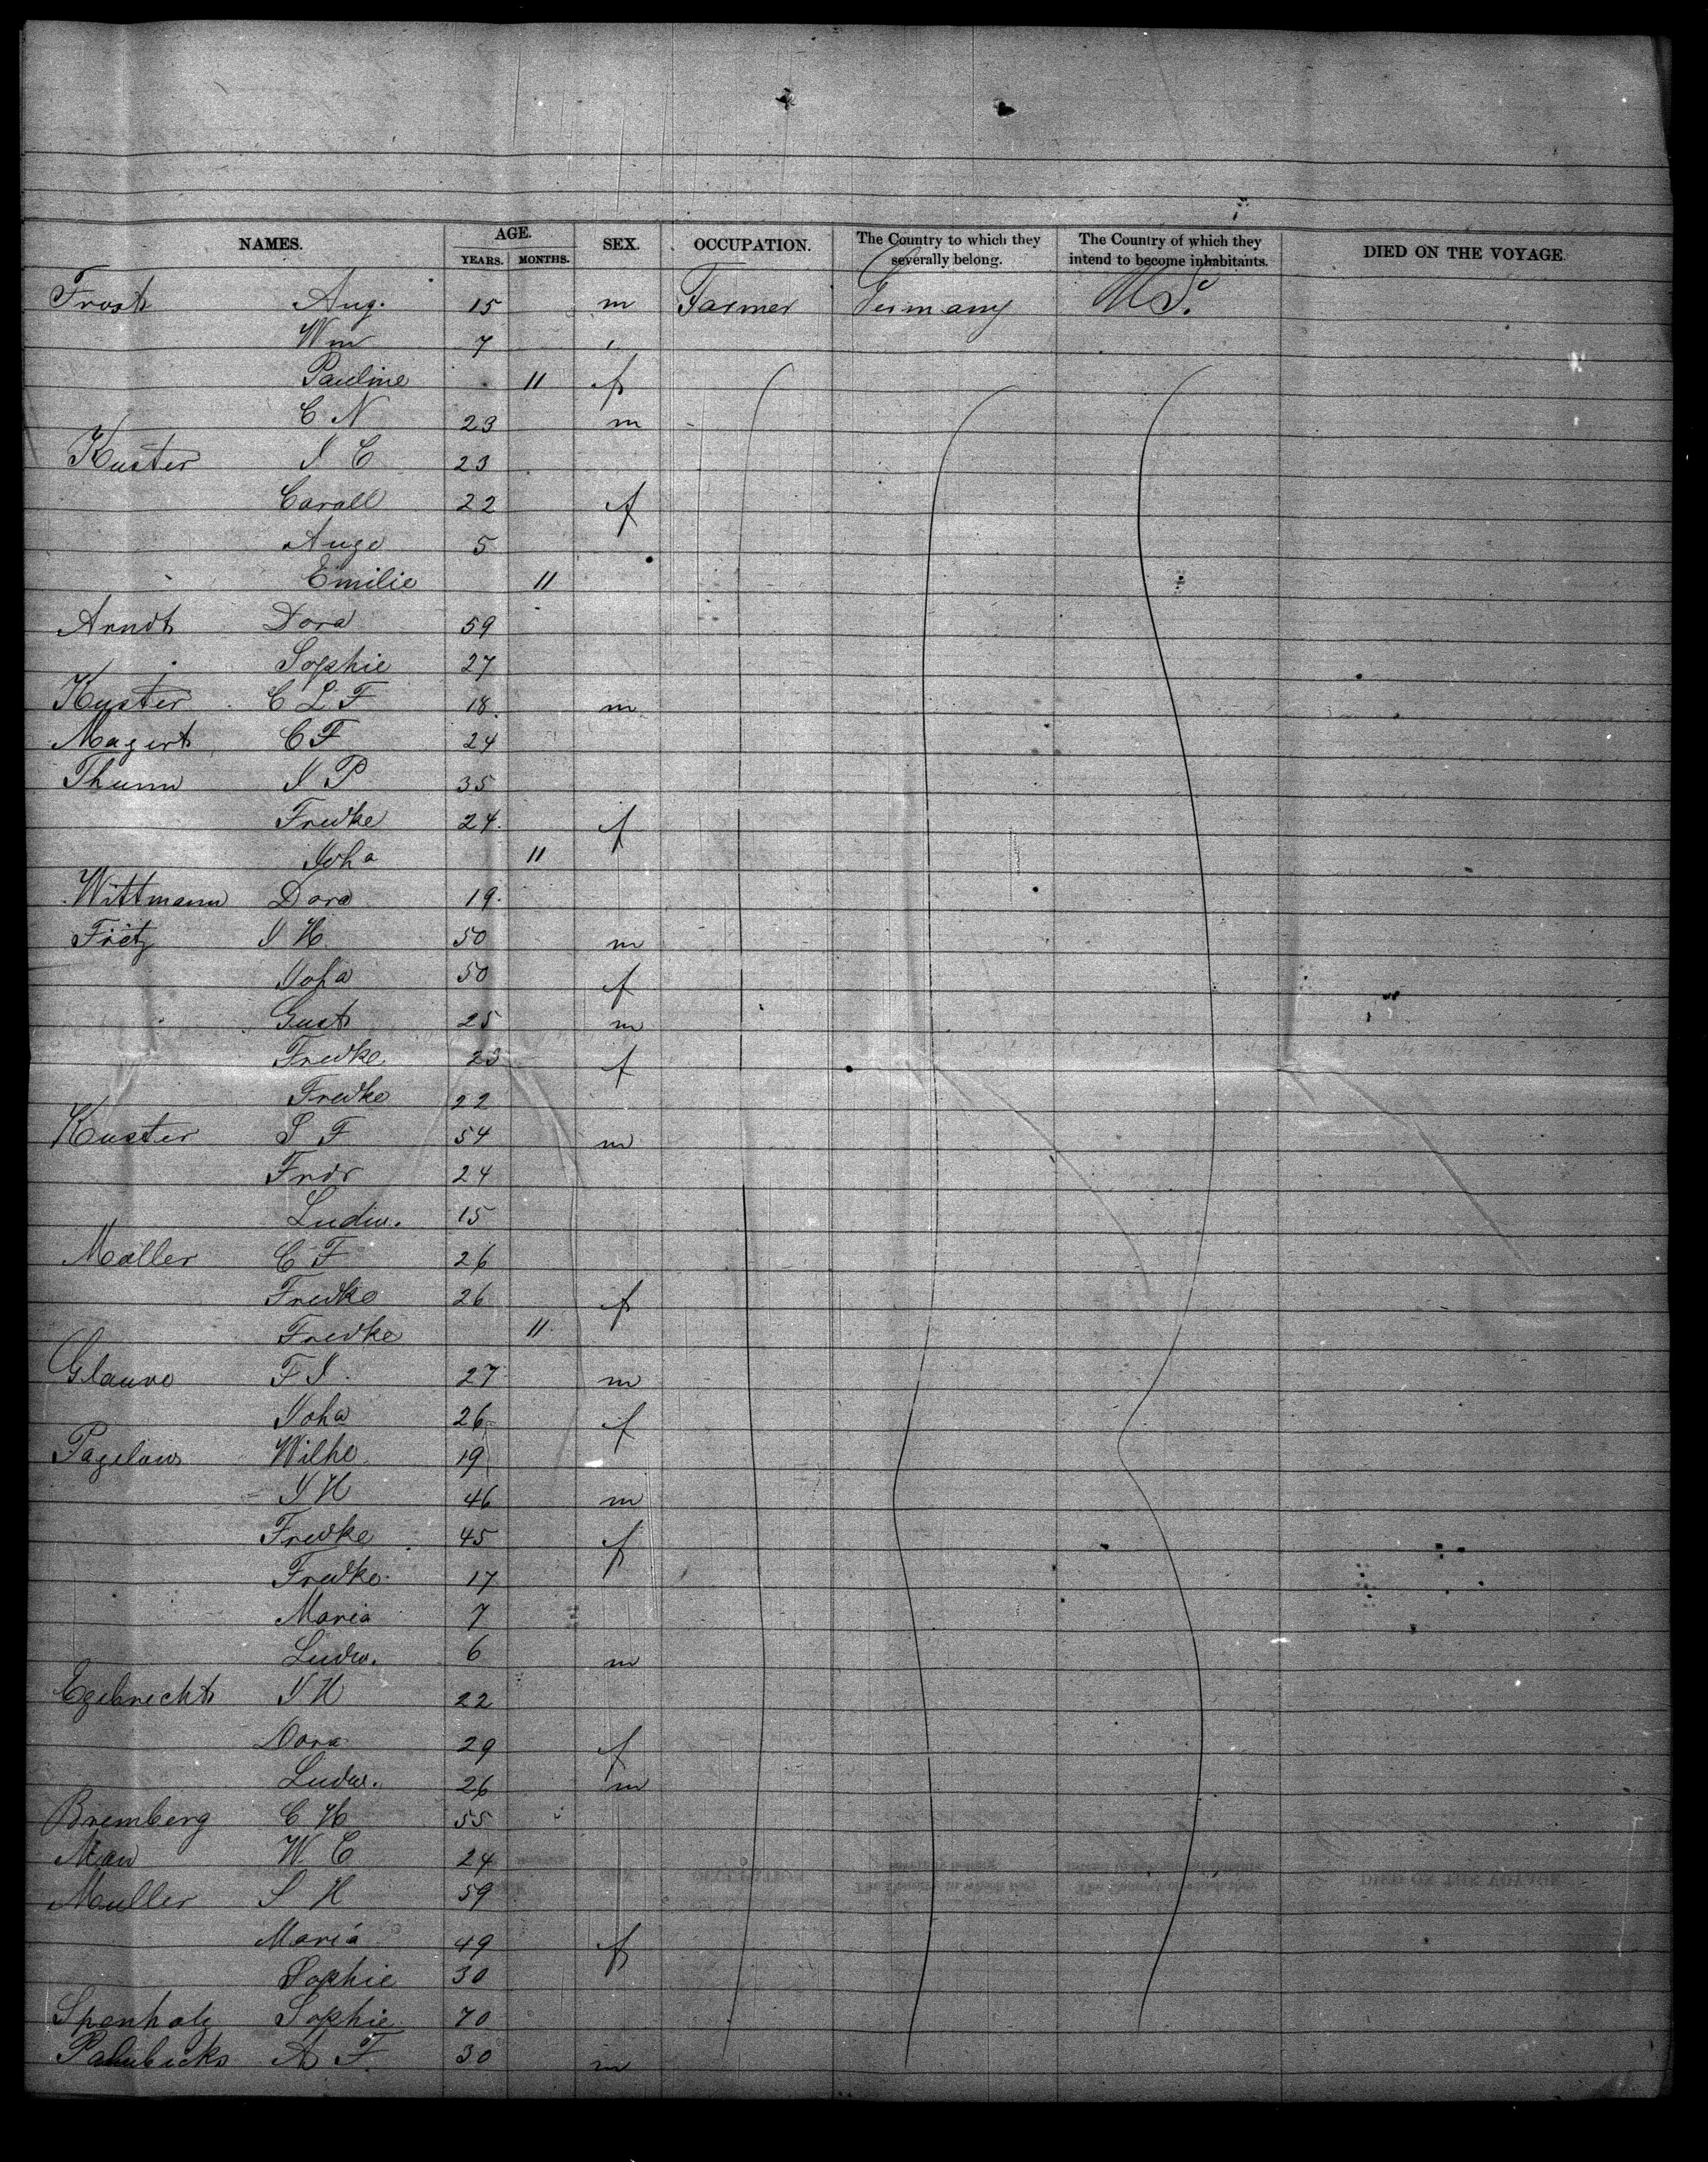 NAMES. AGE. SEX. OCCUPATION. The Country to which they severally belong. The Country of which they intend to become inhabitants. DIED ON THE VOYAGE
YEARS. MONTHS.
Frost Aug. 15 m Farmer Germany U S.
Wm 7 "
Pauline 11 f
C N 23 m
Kuster J C 23
Caroll 22 f
Auge 5
Emilie 11
Arndt Dora 59
Sophie 27
Kuster C L F 18 m
Magert C F 24
Thumm J P 35
Fredke 24 f
Joha 11
Wittmann Dora 19
Fretz J H 50 m
Joha 50 f
Gust 25 m
Fredke 23 f
Fredke 22
Kuster S F 54 m
Frdr 24
Ludw. 15
Moller C F 26
Fredke 26 f
Fredke 11
Glauve F J. 27 m
Joha 26 f
Pagelow Wilhe 19
J H 46 m
Fredke 45 f
Fredke 17
Maria 7
Ludw. 6 m
Egebrecht J H 22
Dora 29 f
Ludw. 26 m
Bremberg C H 55
Mau W C 24
Muller S H 59
Maria 49 f
Sophie 30
Spenholz Sophie 70
A F. 30 m